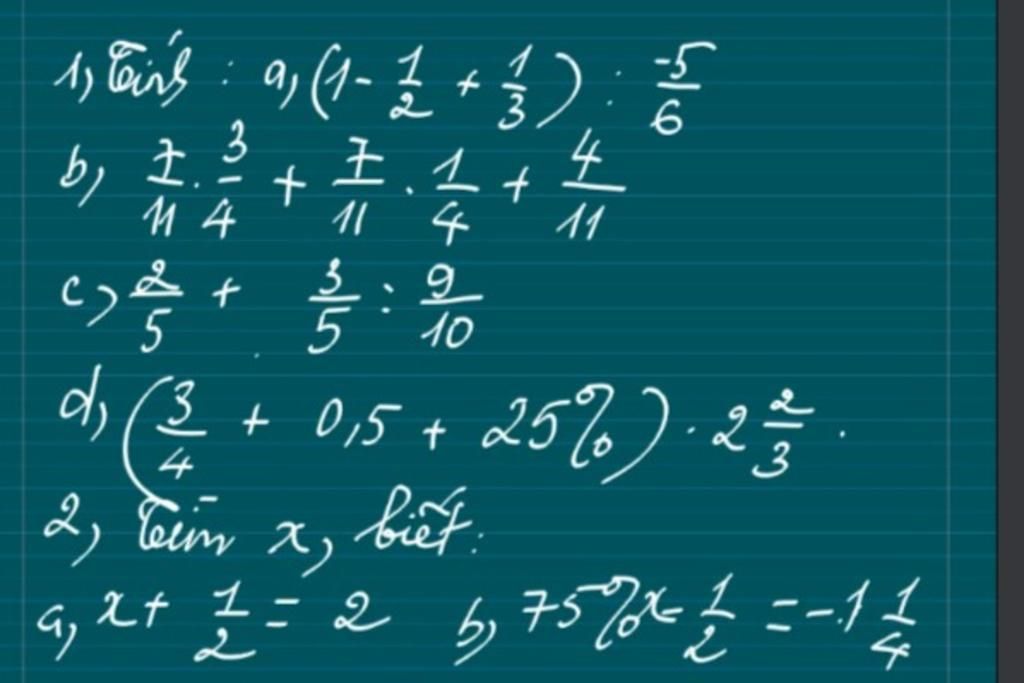 1, Tính : a, (1 - 1/2 + 1/3) : -5/6
b, 7/11 . 3/4 + 7/11 . 1/4 + 4/11
c, 2/5 + 3/5 : 9/10
d, (3/4 + 0,5 + 25%) . 2 2/3 .
2, Tìm x, biết :
a, x + 1/2 = 2 b, 75%x - 1/2 = -1 1/4